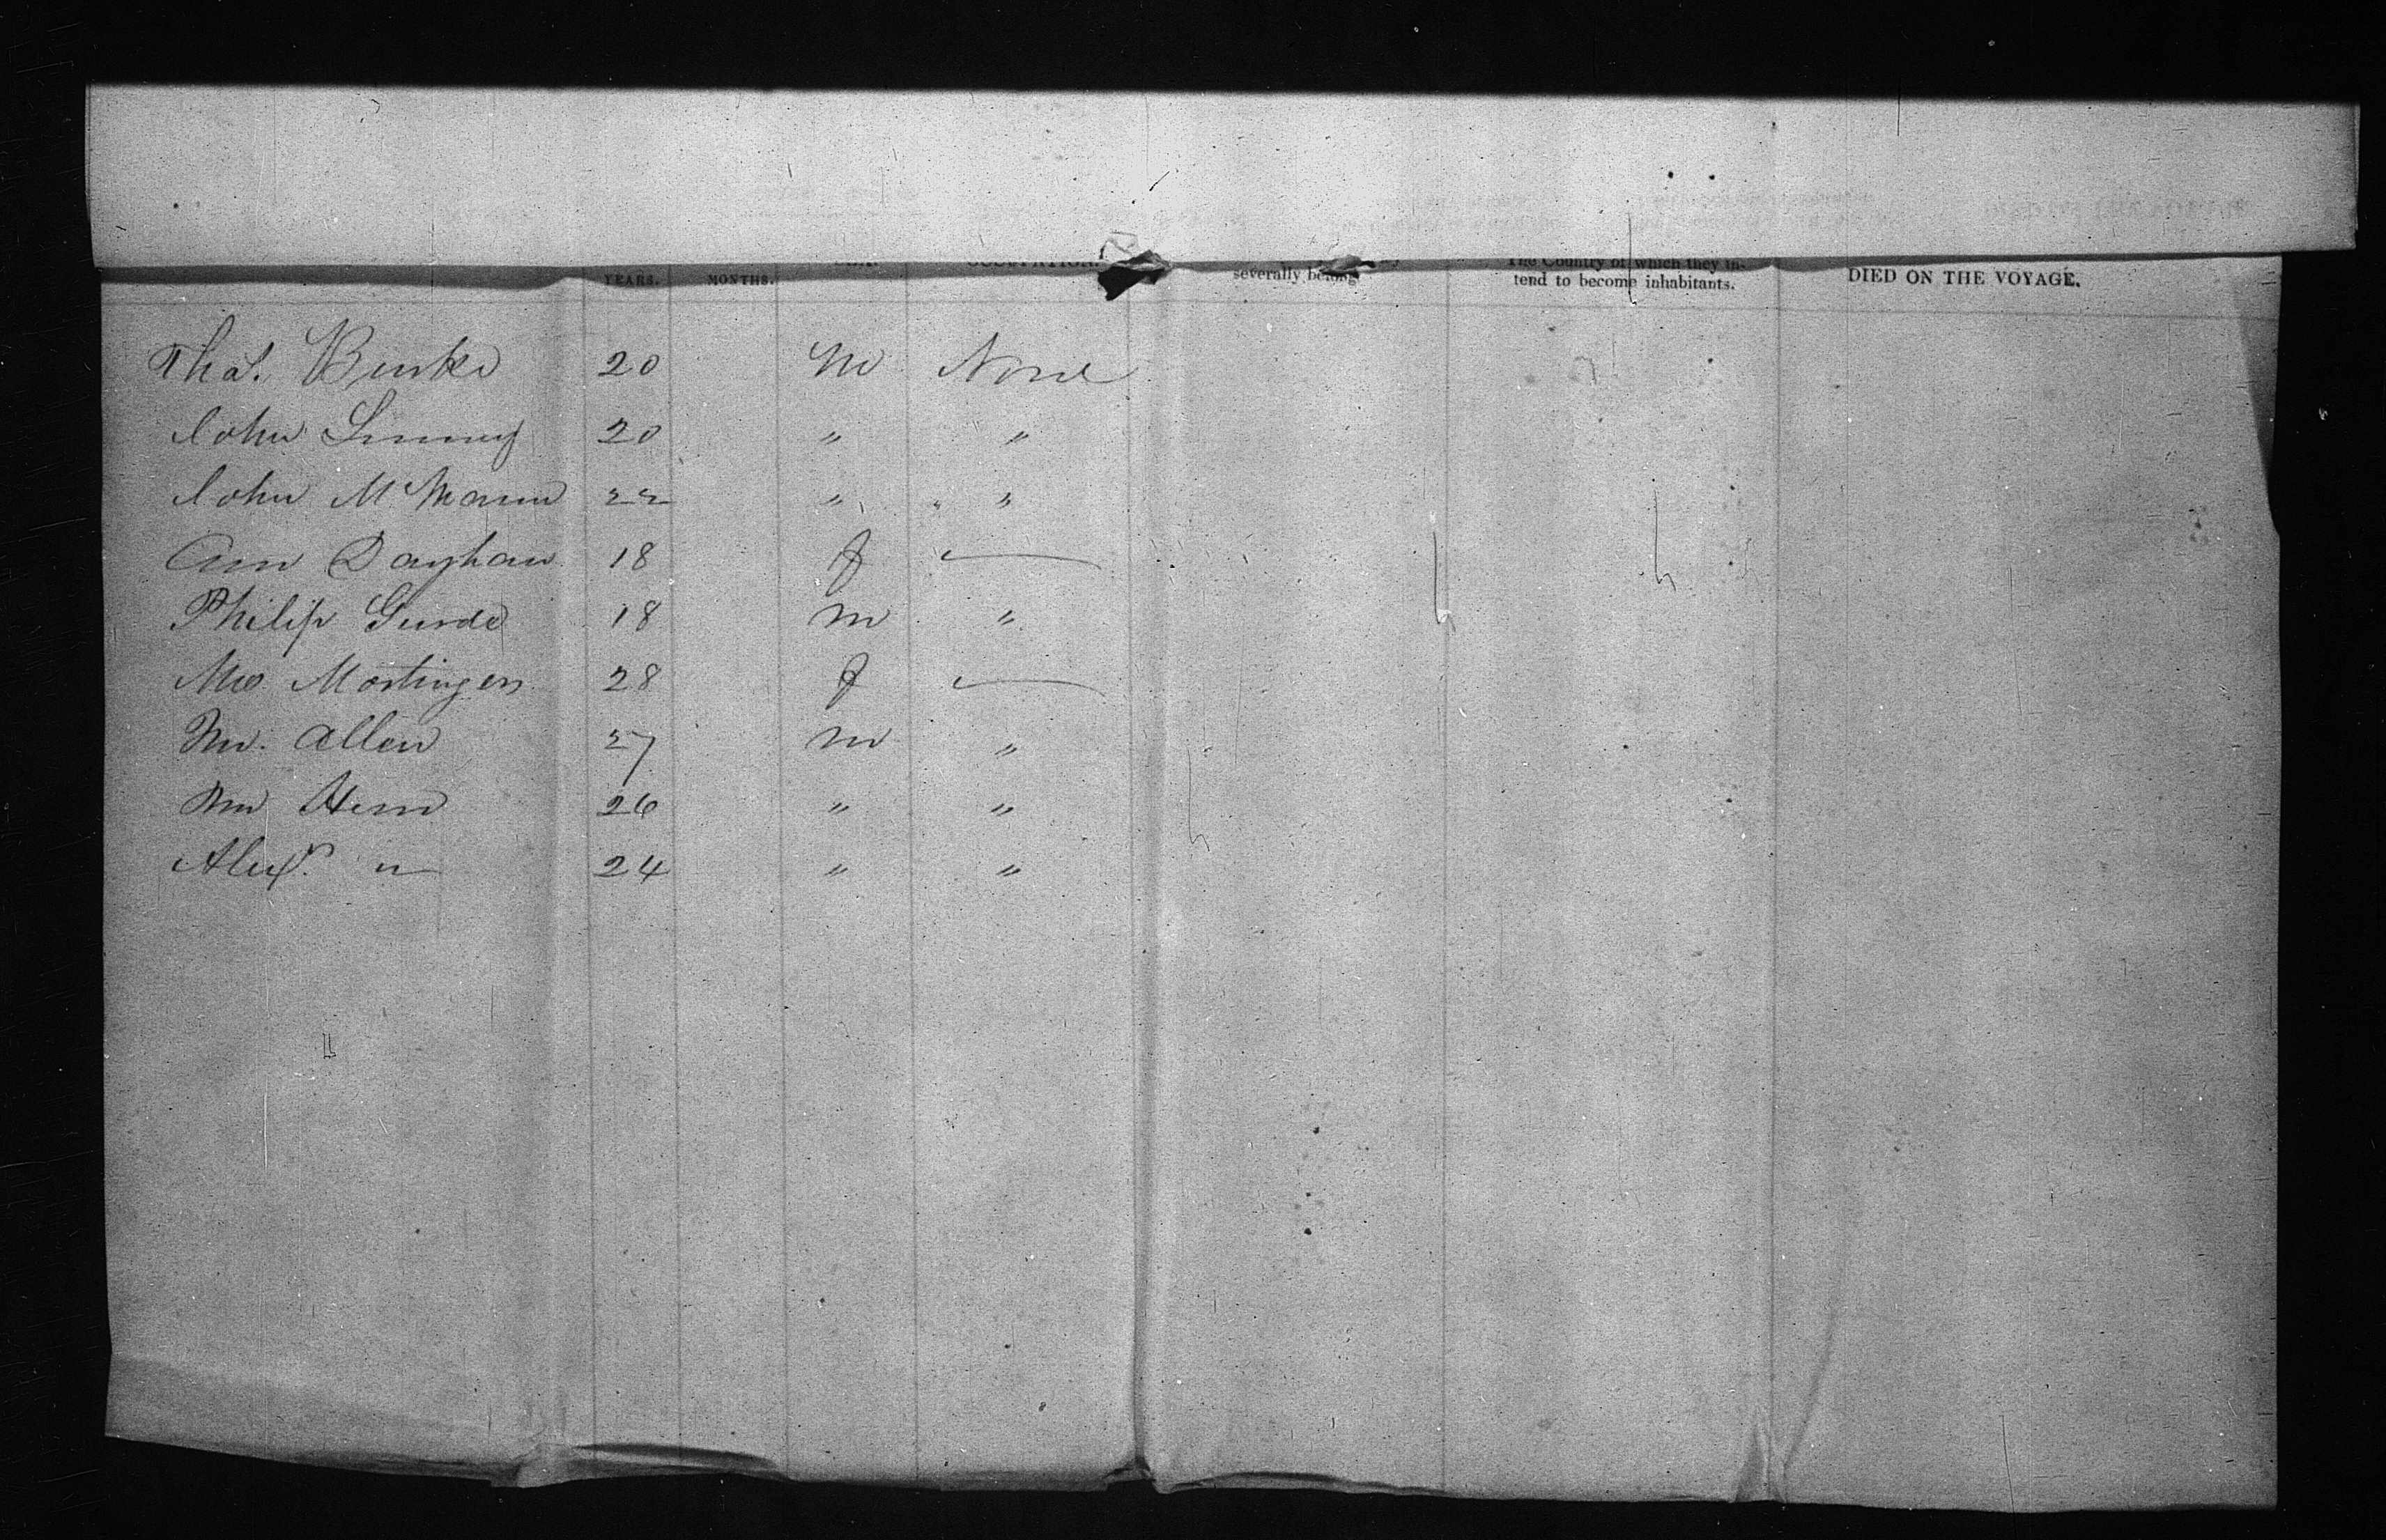 YEARS. MONTHS. SEX. OCCUPATION. severally belong. The Country of which they in-
tend to become inhabitants. DIED ON THE VOYAGE.
Thos. Burke 20 M None
John 20 " "
John McMann 22 " "
Ann 18 f —
Philip 18 m "
28 f —
Wm. Allen 27 m "
Wm Hern 26 " "
Alexr. " 24 " "